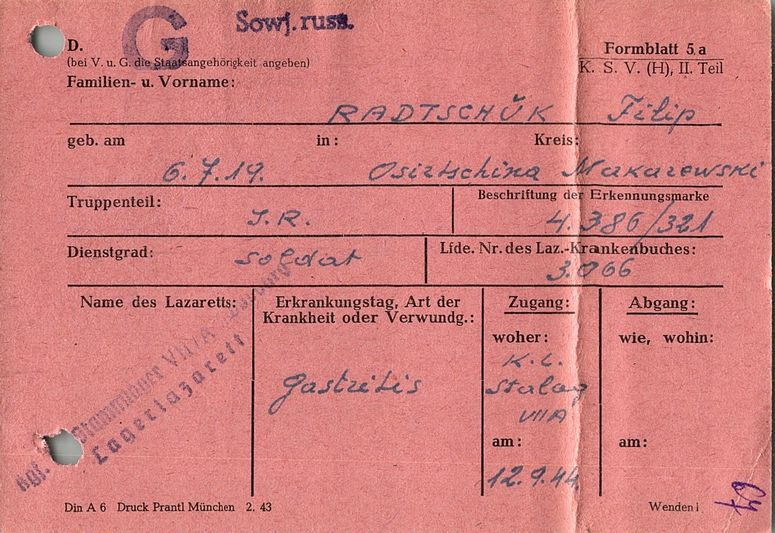 G Sowj. russ.
D. Formblatt 5 a
(bei V. u. G. die Staatsangehörigkeit angeben) K. S. V. (H), II. Teil
Familien- u. Vorname:
RADTSCHŬK Filip
geb. am in: Kreis:
6.7.19. Osirtschina Makarewski
Truppenteil: Beschriftung der Erkennungsmarke
J.R. 4.386/321
Dienstgrad: Lfde. Nr. des Laz.-Krankenbuches:
Soldat 3.066
Name des Lazaretts: Erkrankungstag, Art der Krankheit oder Verwundg.: Zugang: Abgang:
woher: wie, wohin:
Kgf. Stammlager VII/A
Lagerlazarett
Gastritis
K.L.
Stalag
VIIA
am: am:
12.9.44.
Din A 6 Druck Prantl München 2. 43 Wenden!
64